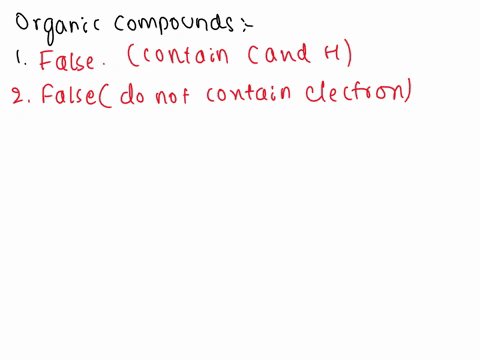 Organic compounds:-
1. False. (contain C and H)
2. False( do not contain electron)